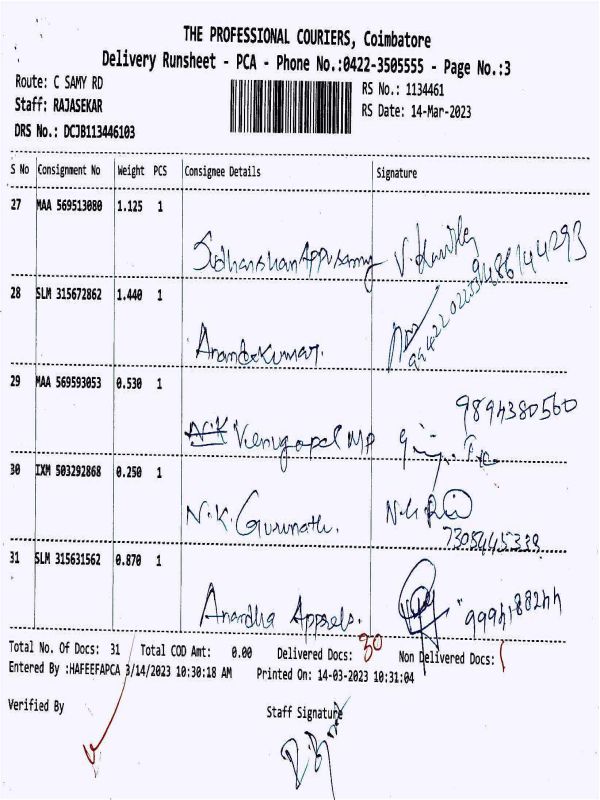 THE PROFESSIONAL COURIERS, Coimbatore
Delivery Runsheet - PCA - Phone No.:0422-3505555 - Page No.:3
Route: C SAMY RD
RS No.: 1134461
Staff: RAJASEKAR
RS Date: 14-Mar-2023
DRS No.: DCJB113446103
S No Consignment No Weight PCS Consignee Details Signature
27 MAA 569513080 1.125 1
Sudharshan Appusamy V.
9486144293
28 SLM 315672862 1.440 1
Anandakumar.
29 MAA 569593053 0.530 1
9894380560
N.K Venugopal MP
30 IXM 503292868 0.250 1
N.K. Gurunath.
7308445339
31 SLM 315631562 0.870 1
Anandha Apprels.
Total No. Of Docs: 31 Total COD Amt: 0.00 Delivered Docs: 30 Non Delivered Docs: 1
Entered By :HAFEEFAPCA 3/14/2023 10:30:18 AM Printed On: 14-03-2023 10:31:04
Verified By Staff Signature